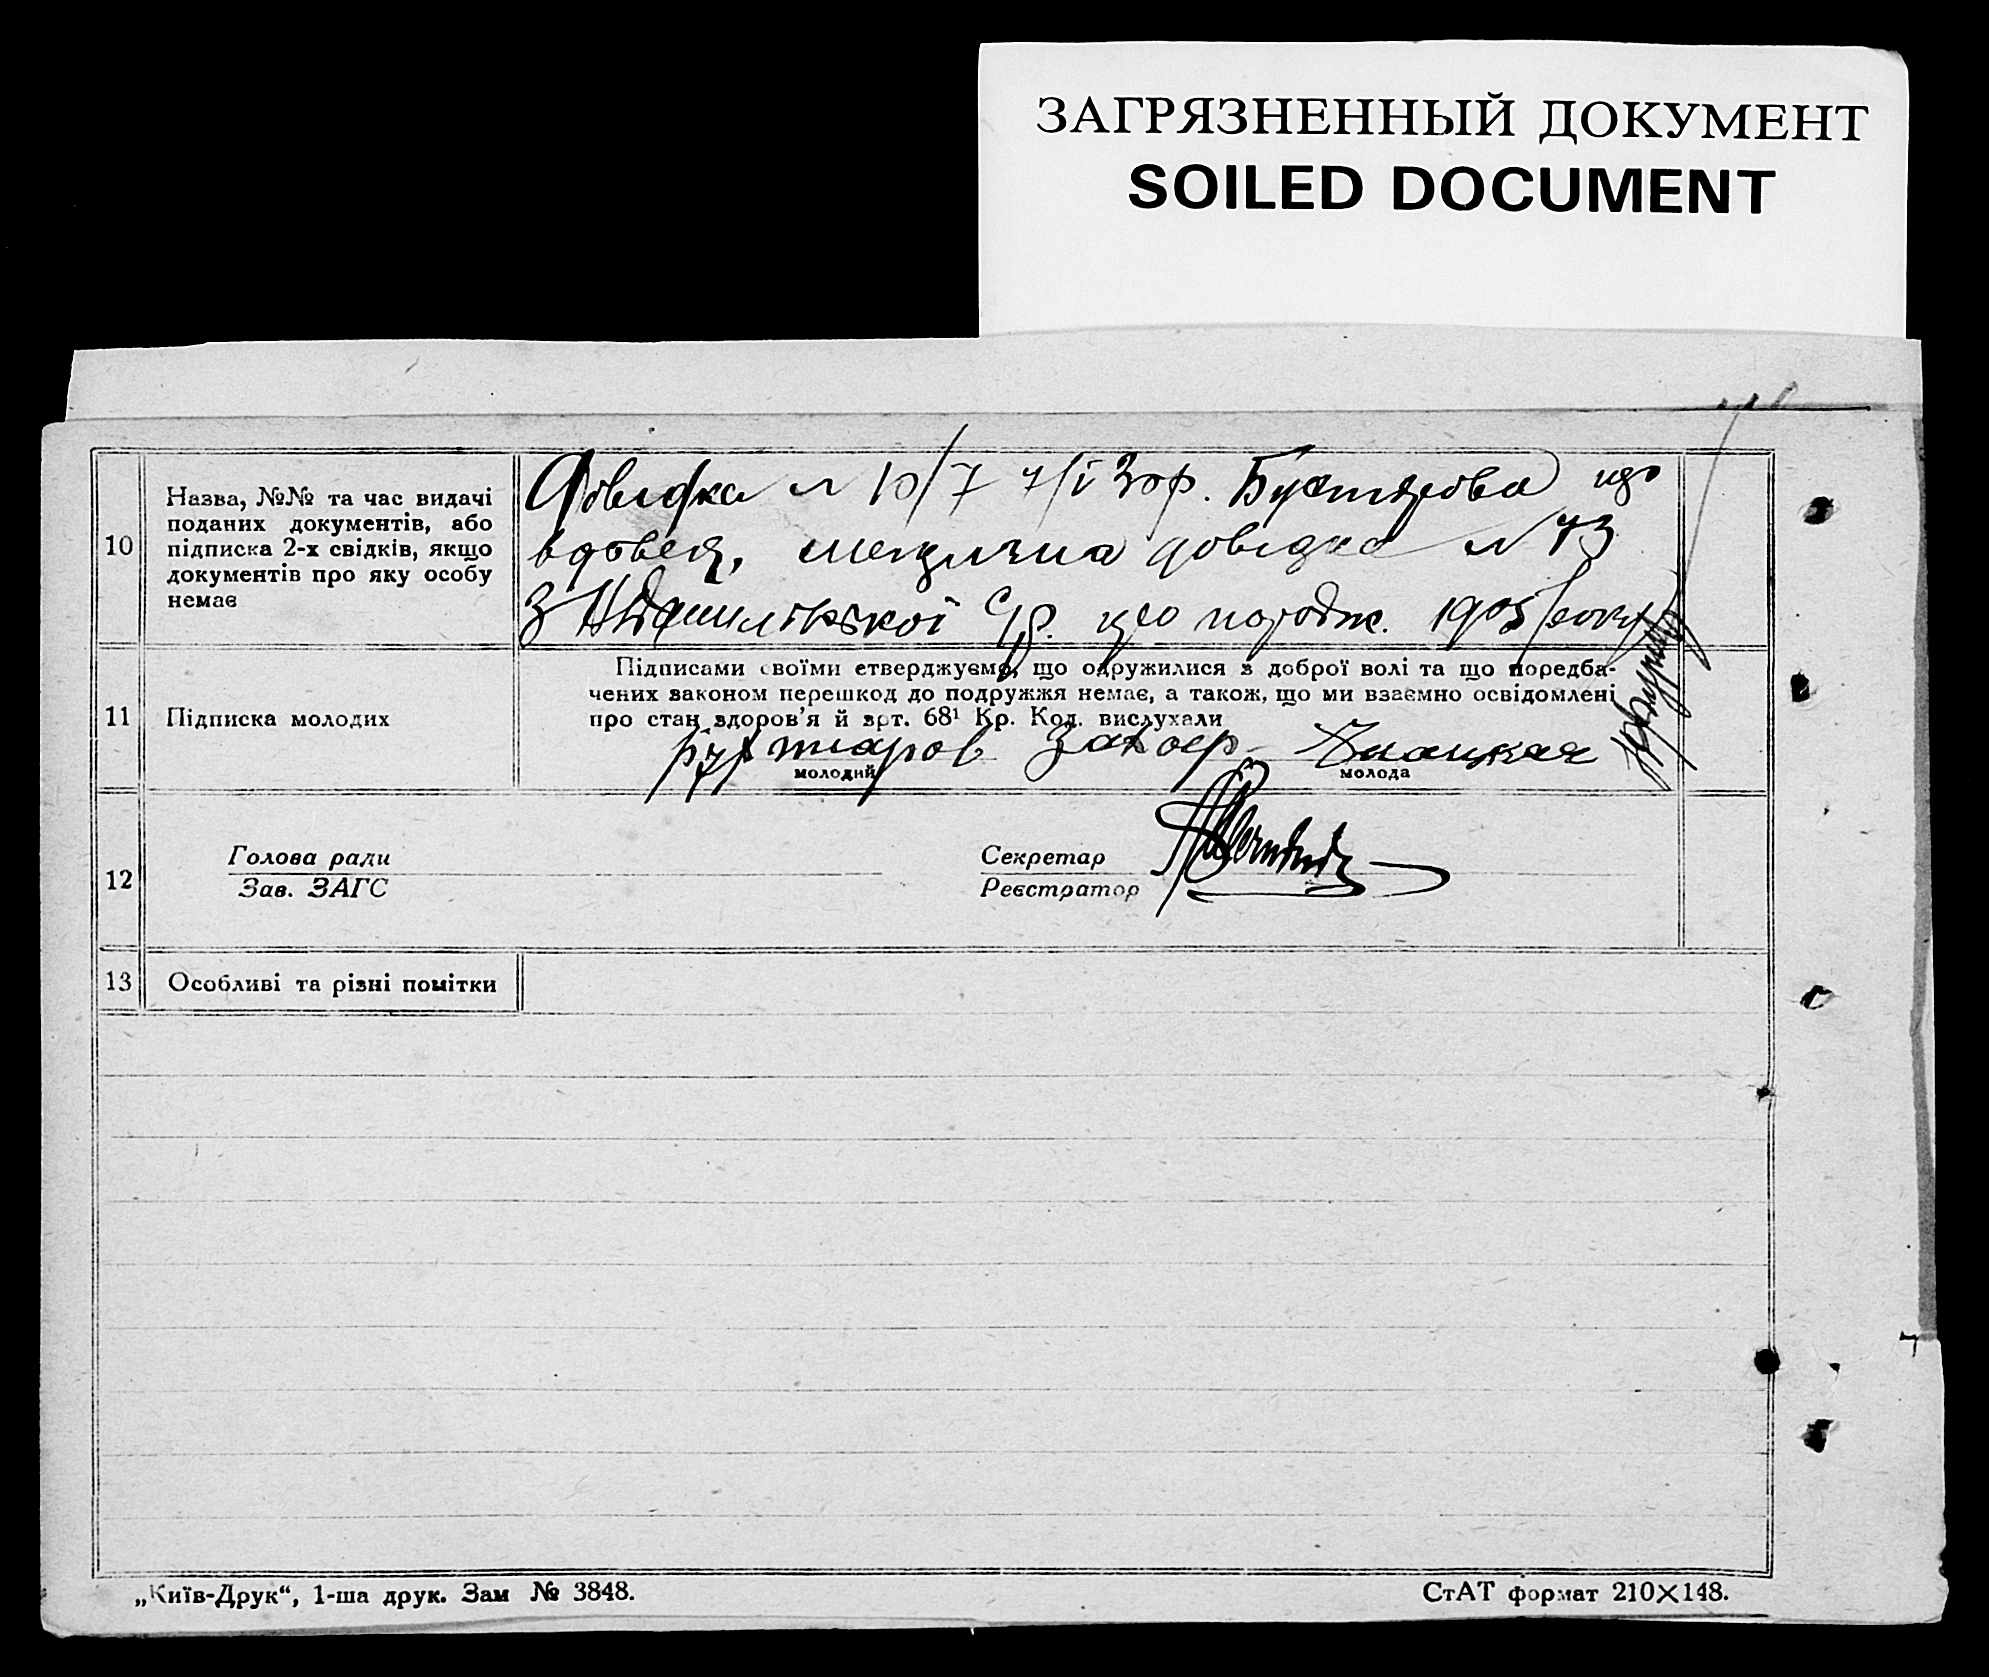 ЗАГРЯЗНЕННЫЙ ДОКУМЕНТ
SOILED DOCUMENT
10
Назва, №№ та час видачі
поданих документів, або
підписка 2-х свідків, якщо
документів про яку особу
немає
Довідка 10/7 що
вдовец, медична довідка № 73
З С/р. що породж. 1905 року
11
Підписка молодих
Підписами своїми стверджуємо, що одружилися з доброї волі та що поредба-
чених законом перешкод до подружжя немає, а також, що ми взаємно освідомлені
про стан здоров'я й арт. 68¹ Кр. Код. вислухали
молодий
молода
12
Голова ради
Зав. ЗАГС
Секретар
Реєстратор
13
Особливі та різні помітки
„Київ-Друк“, 1-ша друк. Зам № 3848.
СтАТ формат 210×148.